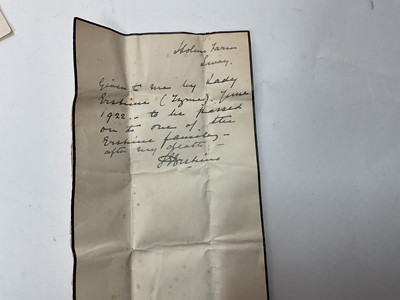 Holme Farm
Sway.
Given to me by Lady
Erskine (Tyme). June
1922 - to be passed
on to one of the
Erskine family -
after my death -
Erskine